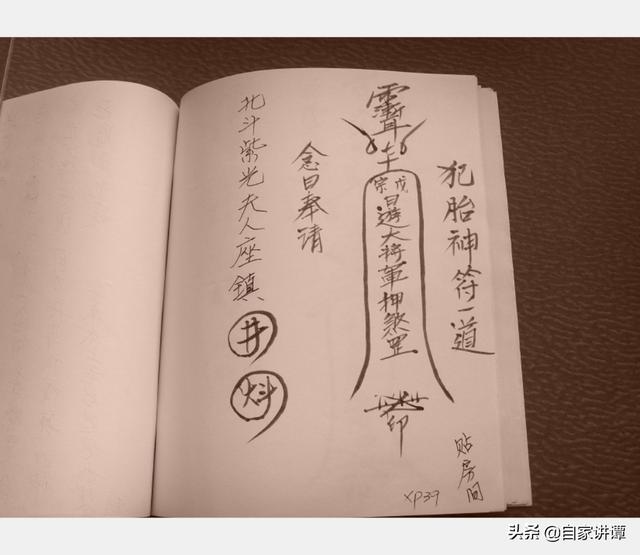 犯胎神符一道
贴房间
日遊大将軍押煞罡
印
念曰奉请
北斗紫光夫人座鎮
井
炓
XP39
头条 @自家讲谭